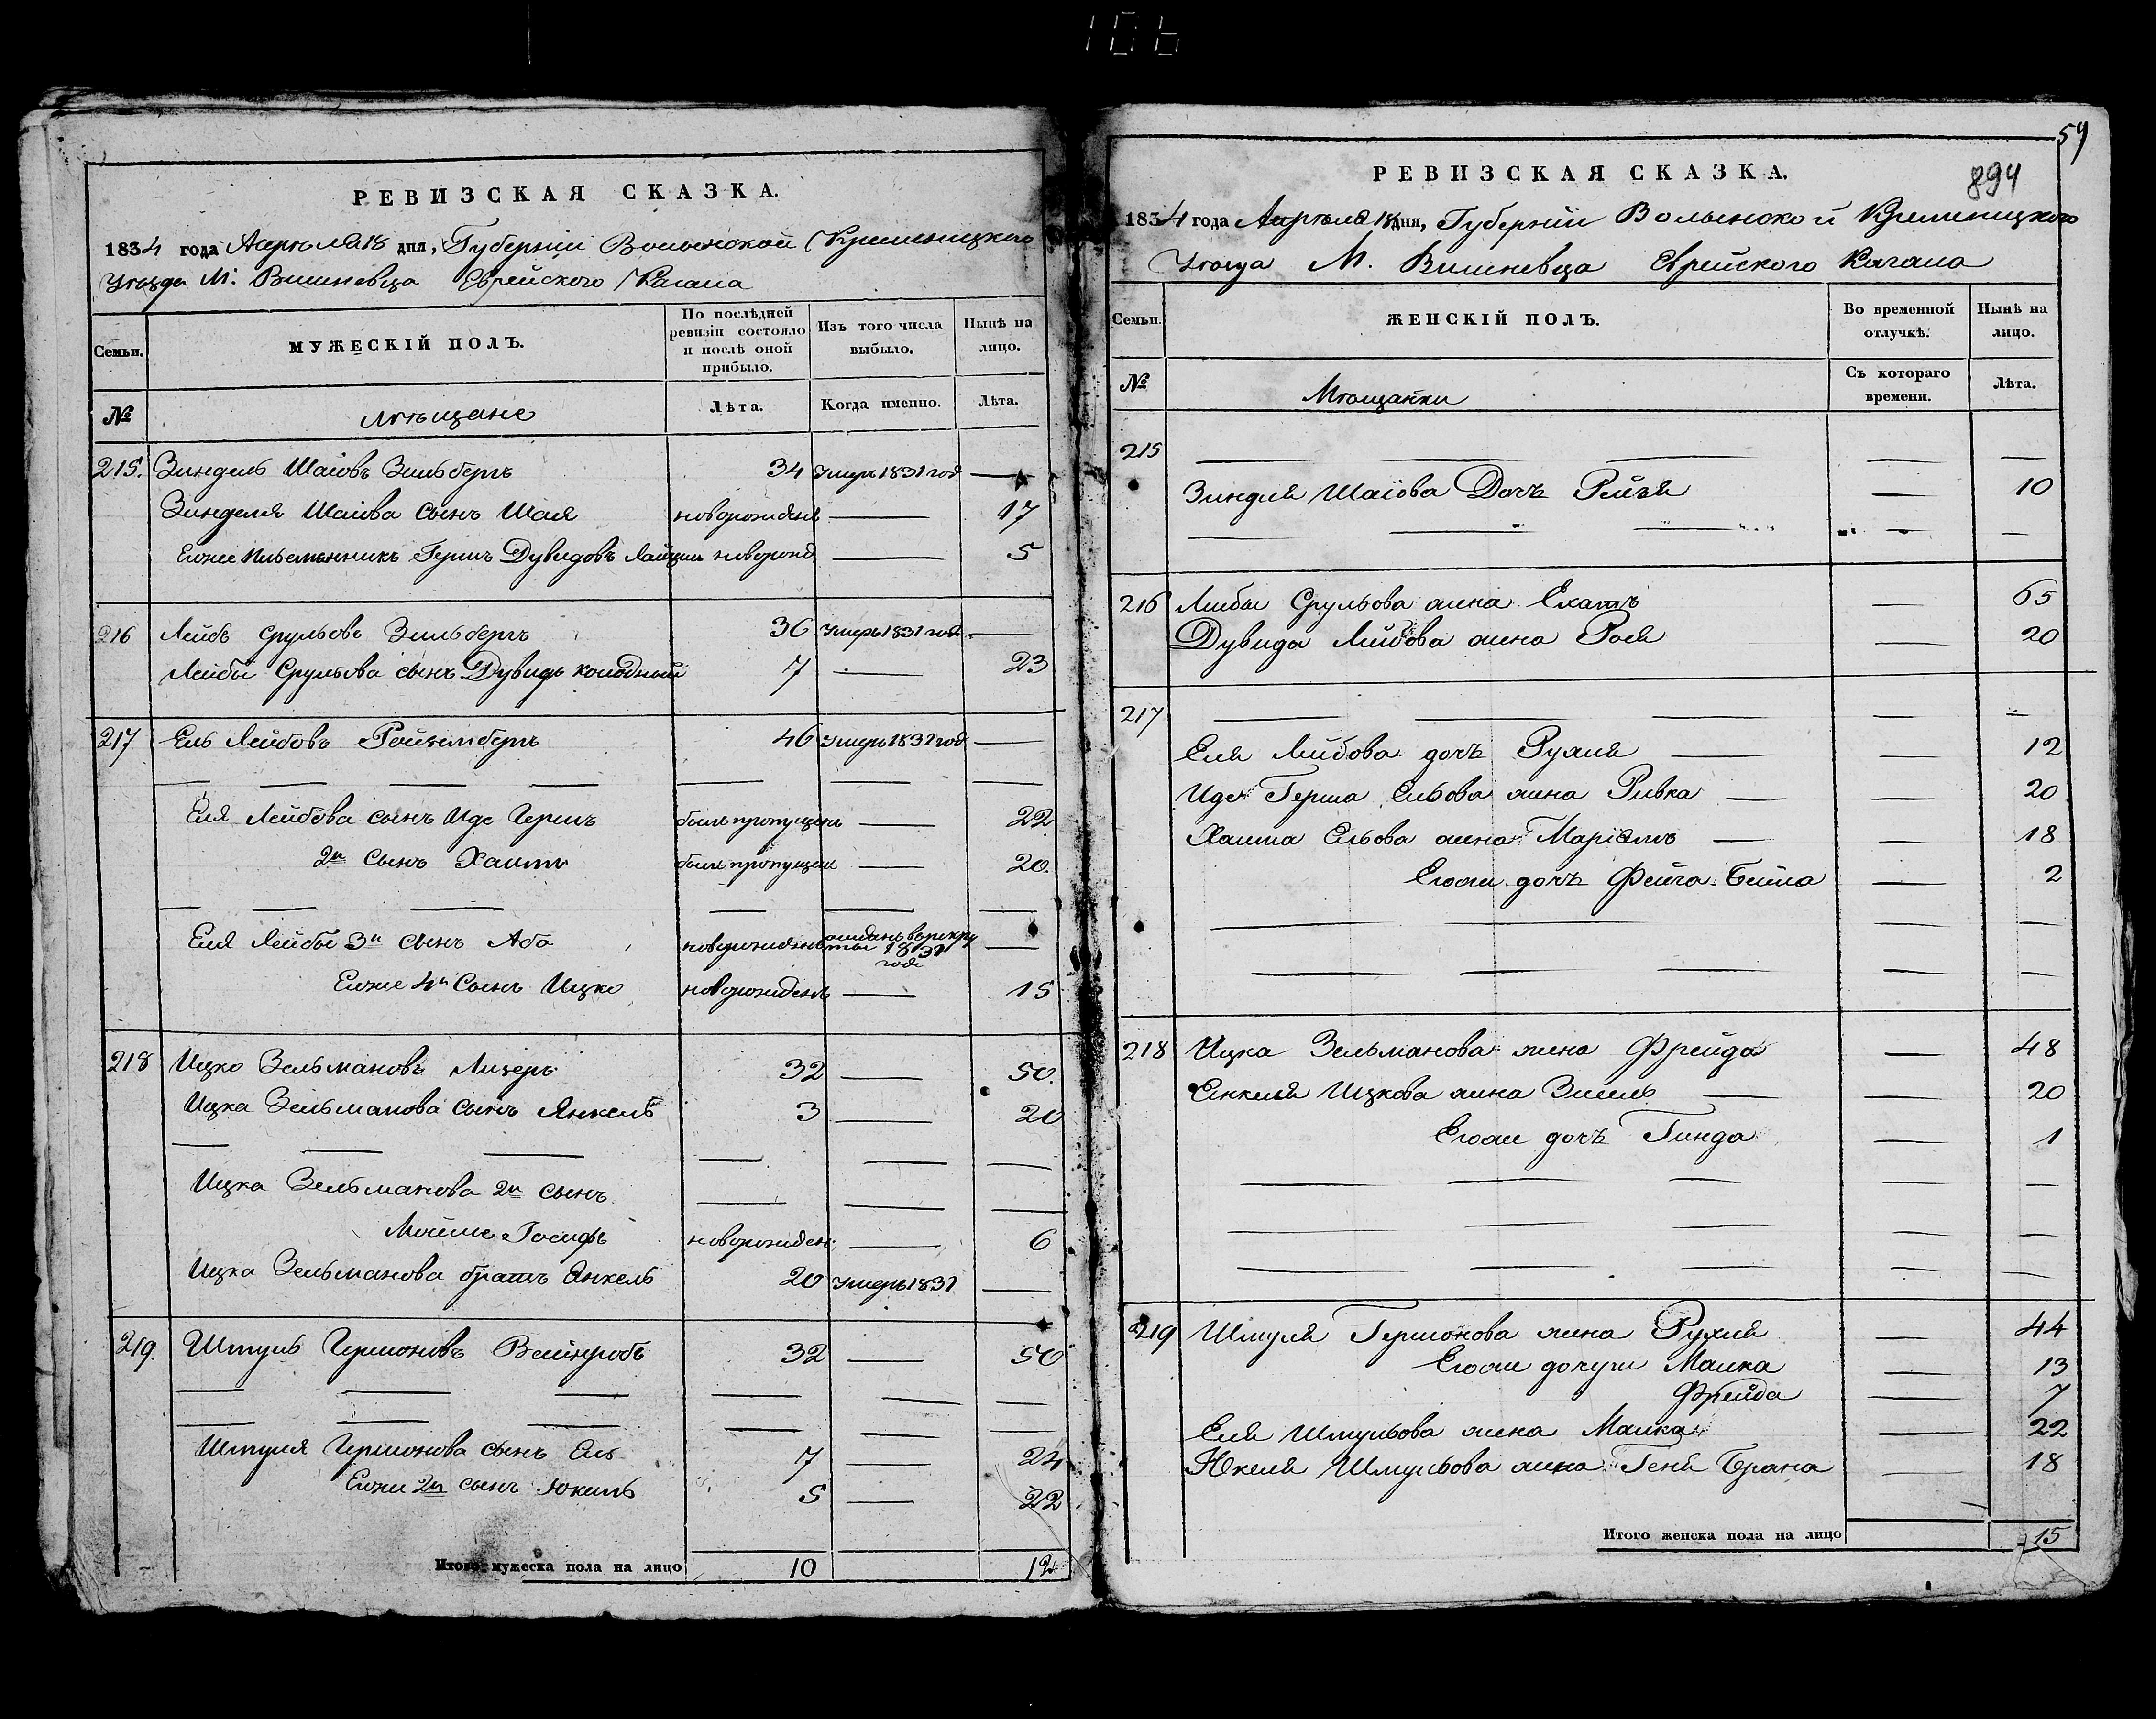 106
РЕВИЗСКАЯ СКАЗКА.
1834 года Апреля 18 дня, Губерніи Волынской Кременецкого
Уѣзда М. Вишневца Еврейского Кагала
Семьи.
МУЖЕСКІЙ ПОЛЪ.
По послѣдней ревизіи состояло и послѣ оной прибыло.
Изъ того числа выбыло.
Нынѣ на лицо.
№
мѣщане
Лѣта.
Когда именно.
Лѣта.
215. Зиндель Шаіовъ Зильберъ 34 умеръ 1831 год —
Зинделя Шаіова сынъ Шая новорожденъ — 17
Егоже племянникъ Гершъ Дувидовъ новорожд — 5
216 Лейбъ Срульовъ Зильберъ 36 умеръ 1831 год —
Лейбы Срульова сынъ Дувидъ 7 — 23
217 Ель Лейбовъ Ройзенберъ 46 умеръ 1831 год —
Еля Лейбова сынъ Иде Гершъ былъ пропущенъ — 22
2й сынъ Хаимъ былъ пропущен — 20.
Еля Лейбы 3й сынъ Аба новорожденъ отданъ в рекруты 1831 годе —
Егоже 4й сынъ Ицко новорожденъ — 15
218 Ицко Зельмановъ Лизеръ 32 — 50.
Ицка Зельманова сынъ Янкель 3 — 20
Ицка Зельманова 2й сынъ
Мойше Госифъ новорожден — 6
Ицка Зельманова братъ Янкель 20 умеръ 1831 —
219. Шмуль Гершоновъ Вейнробъ 32 — 50
Шмуля Гершонова сынъ Ель 7 — 24
Егоже 2й сынъ Юкель 5 — 22
Итого мужеска пола на лицо 10 12
59
894
РЕВИЗСКАЯ СКАЗКА.
1834 года Апреля 18 дня, Губерніи Волынской Кременицкого
Уѣзда М. Вишневца Еврейского Кагала
Семьи.
ЖЕНСКІЙ ПОЛЪ.
Во временной отлучкѣ.
Нынѣ на лицо.
№
Мѣщанки
Съ котораго времени.
Лѣта.
215 — — — — —
Зинделя Шаіова Дочъ Рейзя — 10
216 Лейбы Срульова жена — 65
Дувида Лейбова жена Рая — 20
217 — — — — —
Еля Лейбова дочъ Рухля — 12
Иде Герша Ельова жена Ривка — 20
Хаима Ельова жена Маріямъ — 18
Егоже дочъ Фейга Бейла — 2
218 Ицка Зельманова жена Фрейда — 48
Енкеля Ицкова жена — 20
Егоже дочъ Гинда — 1
219 Шмуля Гершонова жена Рухля — 44
Егоже дочери Малка — 13
Фрейда — 7
Еля Шмульова жена Малка — 22
Юкеля Шмульова жена Геня Брана — 18
Итого женска пола на лицо 15